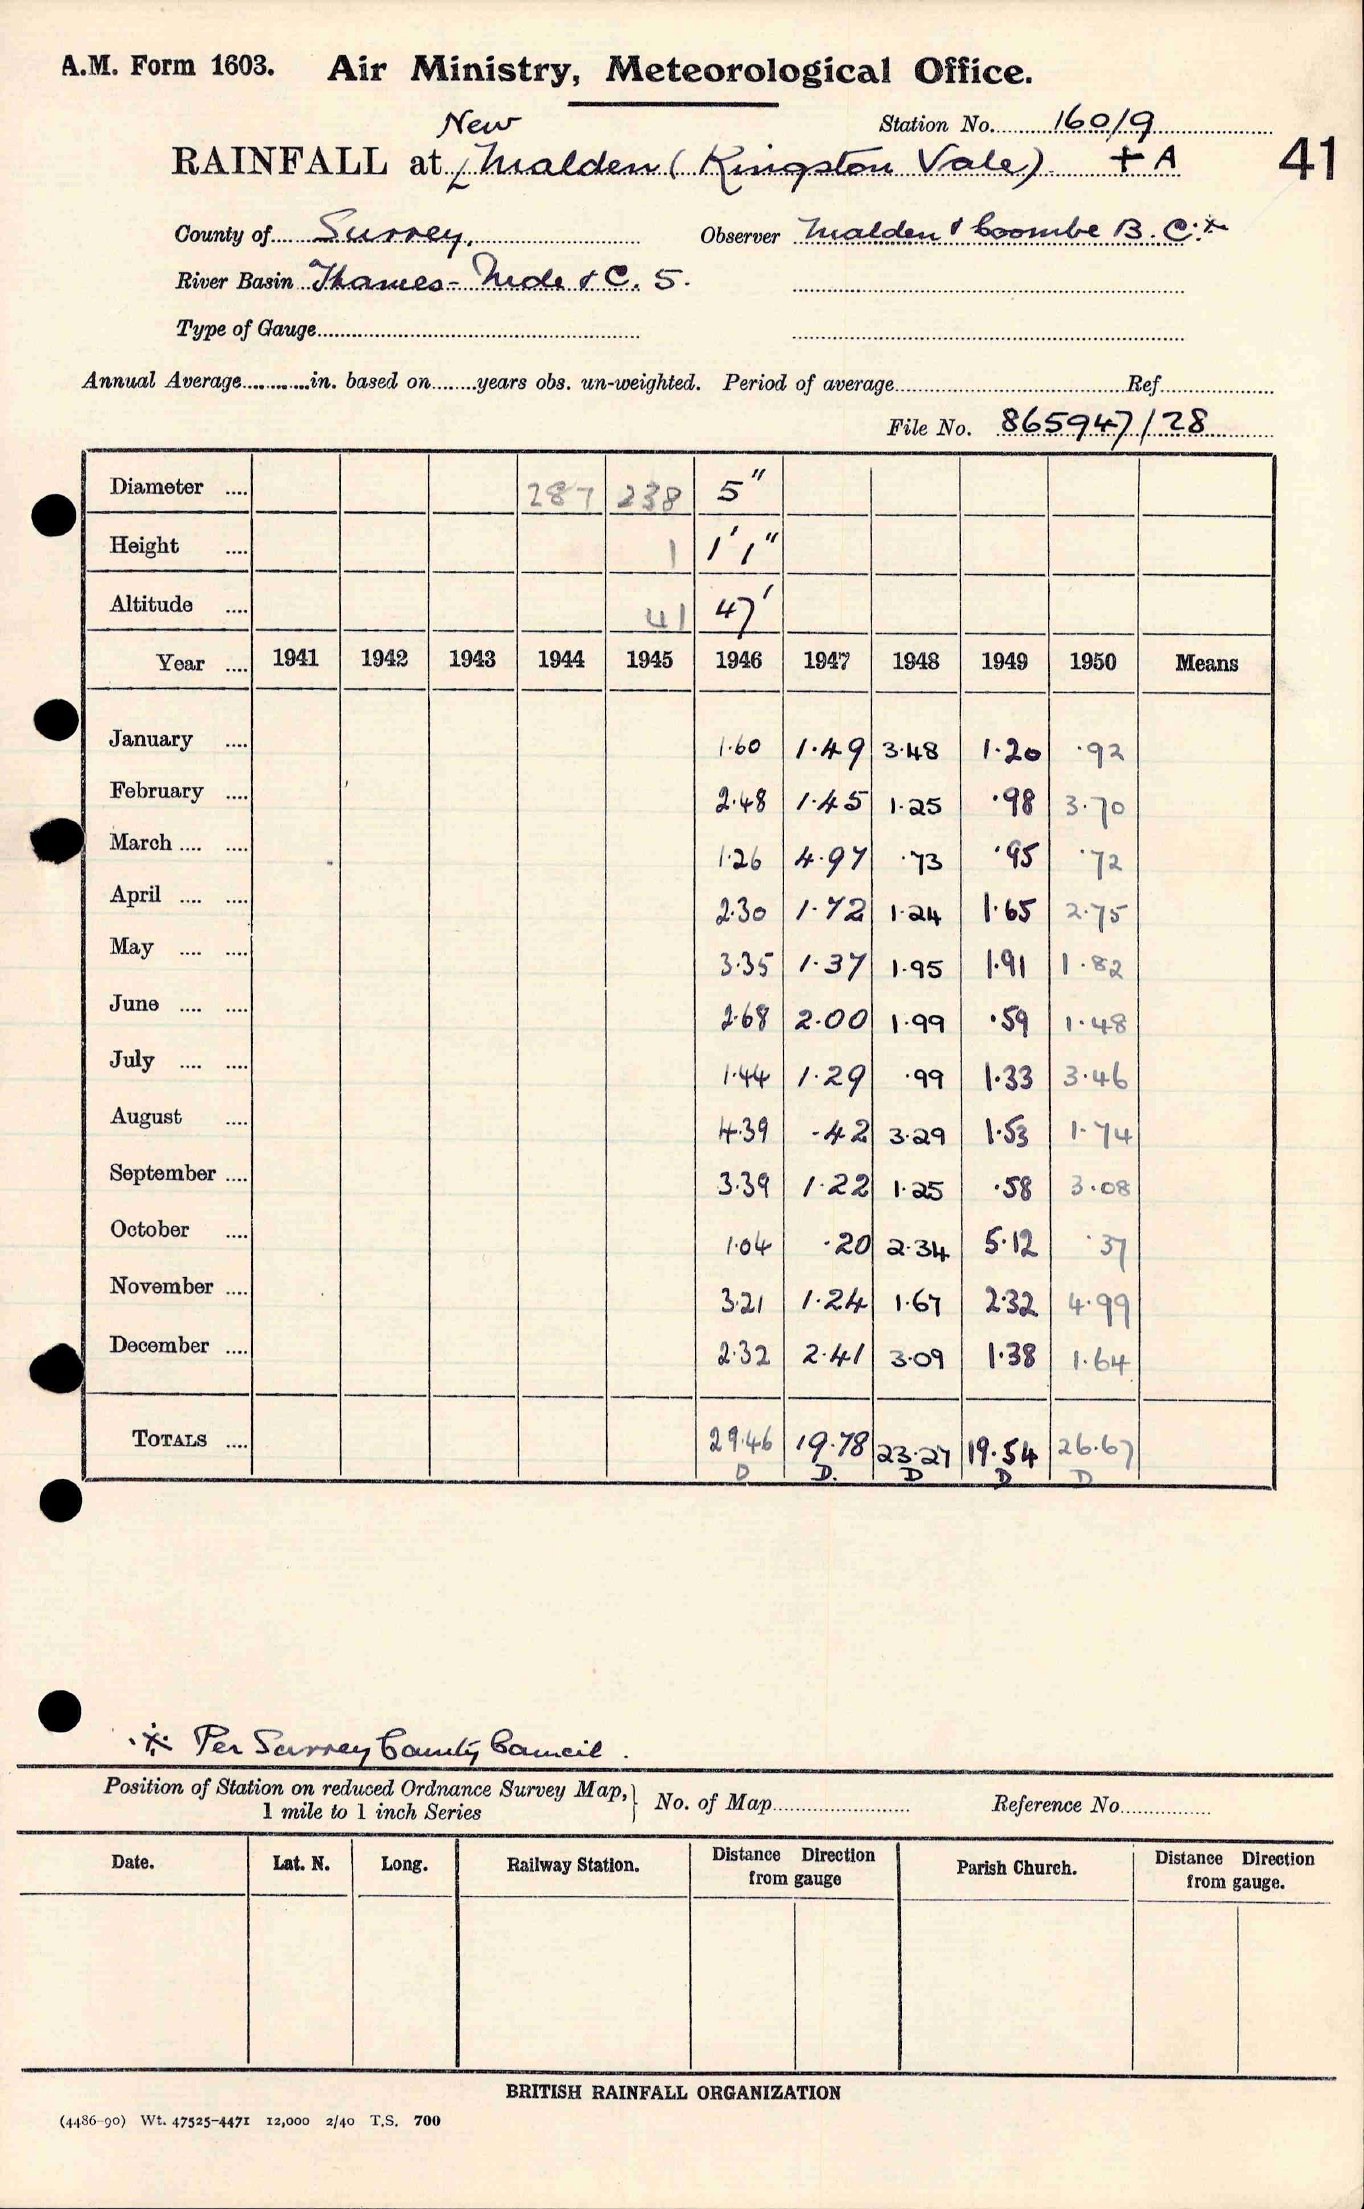 A.M. Form 1603. Air Ministry, Meteorological Office.
New
Station No. 160/9
RAINFALL at Malden (Kingston Vale) + A 41
County of Surrey. Observer Malden & Coombe B.C.*
River Basin Thames- Mole & C. 5.
Type of Gauge
Annual Average in. based on years obs. un-weighted. Period of average Ref
File No. 865947/28
Diameter .... 287 238 5"
Height .... 1 1'1"
Altitude .... 41 47'
Year .... 1941 1942 1943 1944 1945 1946 1947 1948 1949 1950 Means
January .... 1.60 1.49 3.48 1.20 .92
February .... 2.48 1.45 1.25 .98 3.70
March .... .... 1.26 4.97 .73 .95 .72
April .... .... 2.30 1.72 1.24 1.65 2.75
May .... .... 3.35 1.37 1.95 1.91 1.82
June .... .... 2.68 2.00 1.99 .59 1.48
July .... .... 1.44 1.29 .99 1.33 3.46
August .... 4.39 .42 3.29 1.53 1.74
September .... 3.39 1.22 1.25 .58 3.08
October .... 1.04 .20 2.34 5.12 .37
November .... 3.21 1.24 1.67 2.32 4.99
December .... 2.32 2.41 3.09 1.38 1.64
TOTALS .... 29.46 19.78 23.27 19.54 26.67
D D. D D D
* Per Surrey County Council.
Position of Station on reduced Ordnance Survey Map, 1 mile to 1 inch Series } No. of Map Reference No.
Date. Lat. N. Long. Railway Station. Distance Direction from gauge Parish Church. Distance Direction from gauge.
BRITISH RAINFALL ORGANIZATION
(4486-90) Wt. 47525-4471 12,000 2/40 T.S. 700